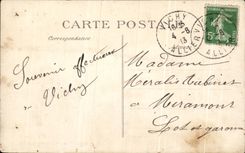 CARTE POSTALE
Correspondance
VICHY
ALLIER
Souvenir affectueux
de Vichy
Madame
à Miramont
Lot et garonne